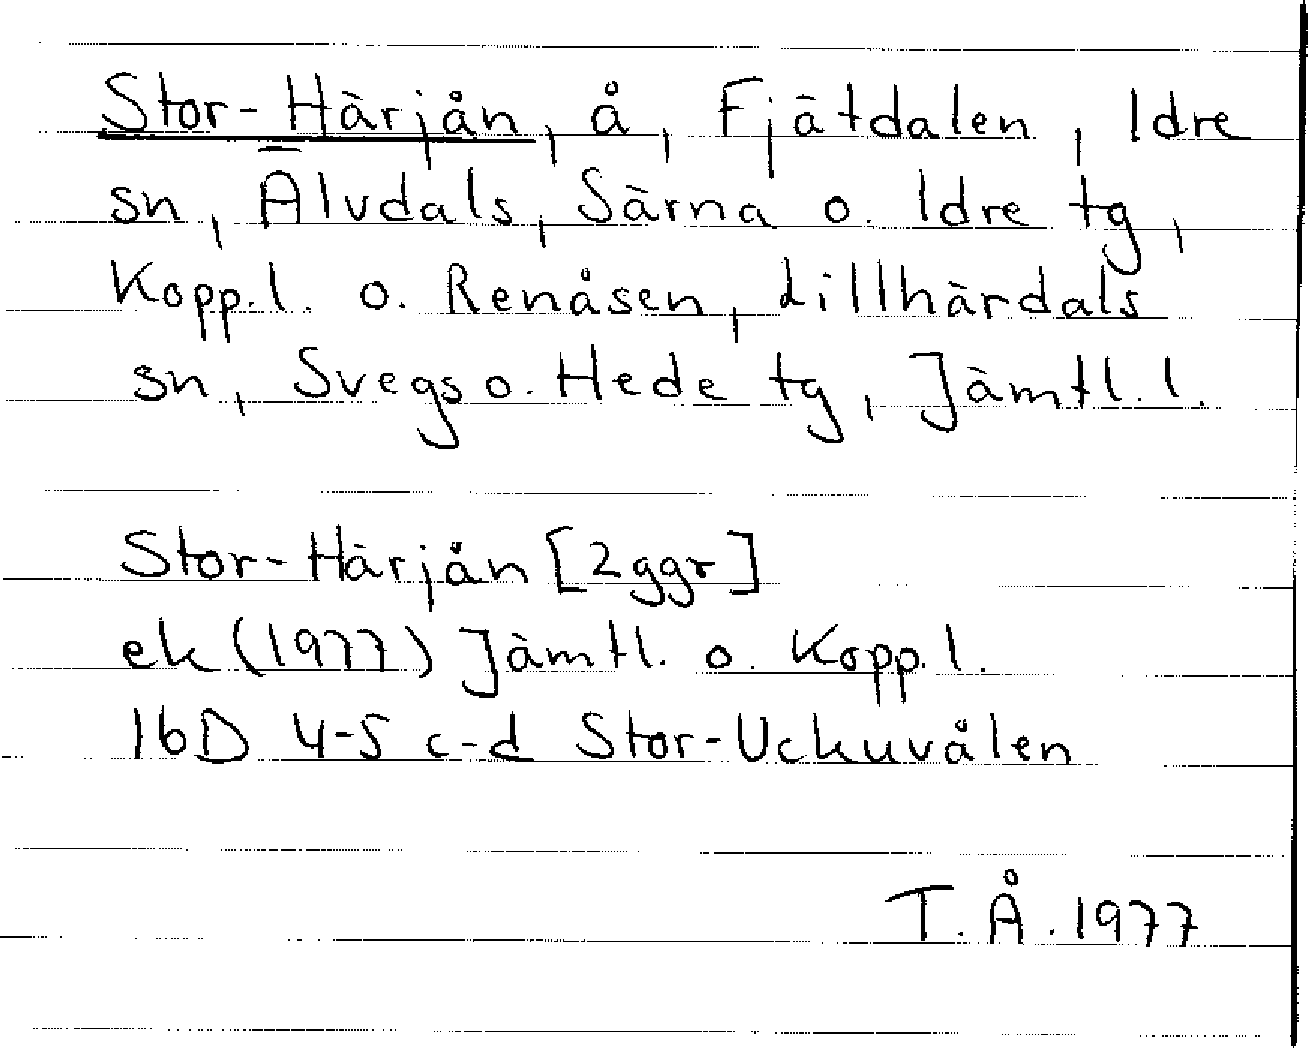 Stor-Härjån, å, Fjätdalen, Idre
sn, Älvdals, Särna o. Idre tg,
Kopp.l. o. Renåsen, Lillhärdals
sn, Svegs o. Hede tg, Jämtl. l.
Stor-Härjån [2 ggr]
ek (1977) Jämtl. o. Kopp. l.
16D 4-5 c-d Stor-Uckuvålen
T. Å. 1977